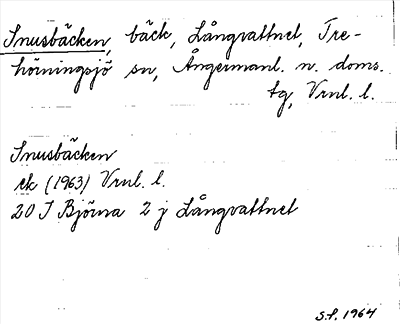 Snusbäcken, bäck, Långvattnet, Tre-
hörningsjö sn, Ångermanl. n. doms.
tg, Vrnl. l.
Snusbäcken
ek (1963) Vrnl. l.
20 I Björna 2 j Långvattnet
S.P. 1964